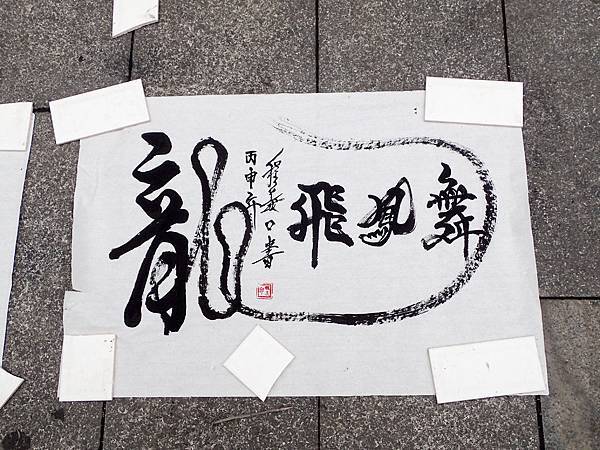 龍飛鳳舞
丙申年
口書